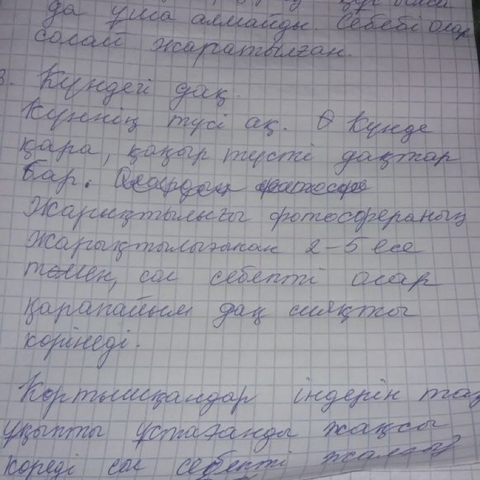 да ұша алмайды. Себебі олар
солай жаратылған.
3. Күндегі дақ.
Күннің түсі ақ. Ө Күнде
қара, қоңыр түсті дақтар
бар. Олардың фотосфе
Жарықтылығы фотосфераның
жарықтылығынан 2-5 есе
төмен, сол себепті олар
қарапайым дақ сияқты
көрінеді.
Көртышқандар індерін таз
ұқыпты ұстағанды жақсы
көреді сол себепті